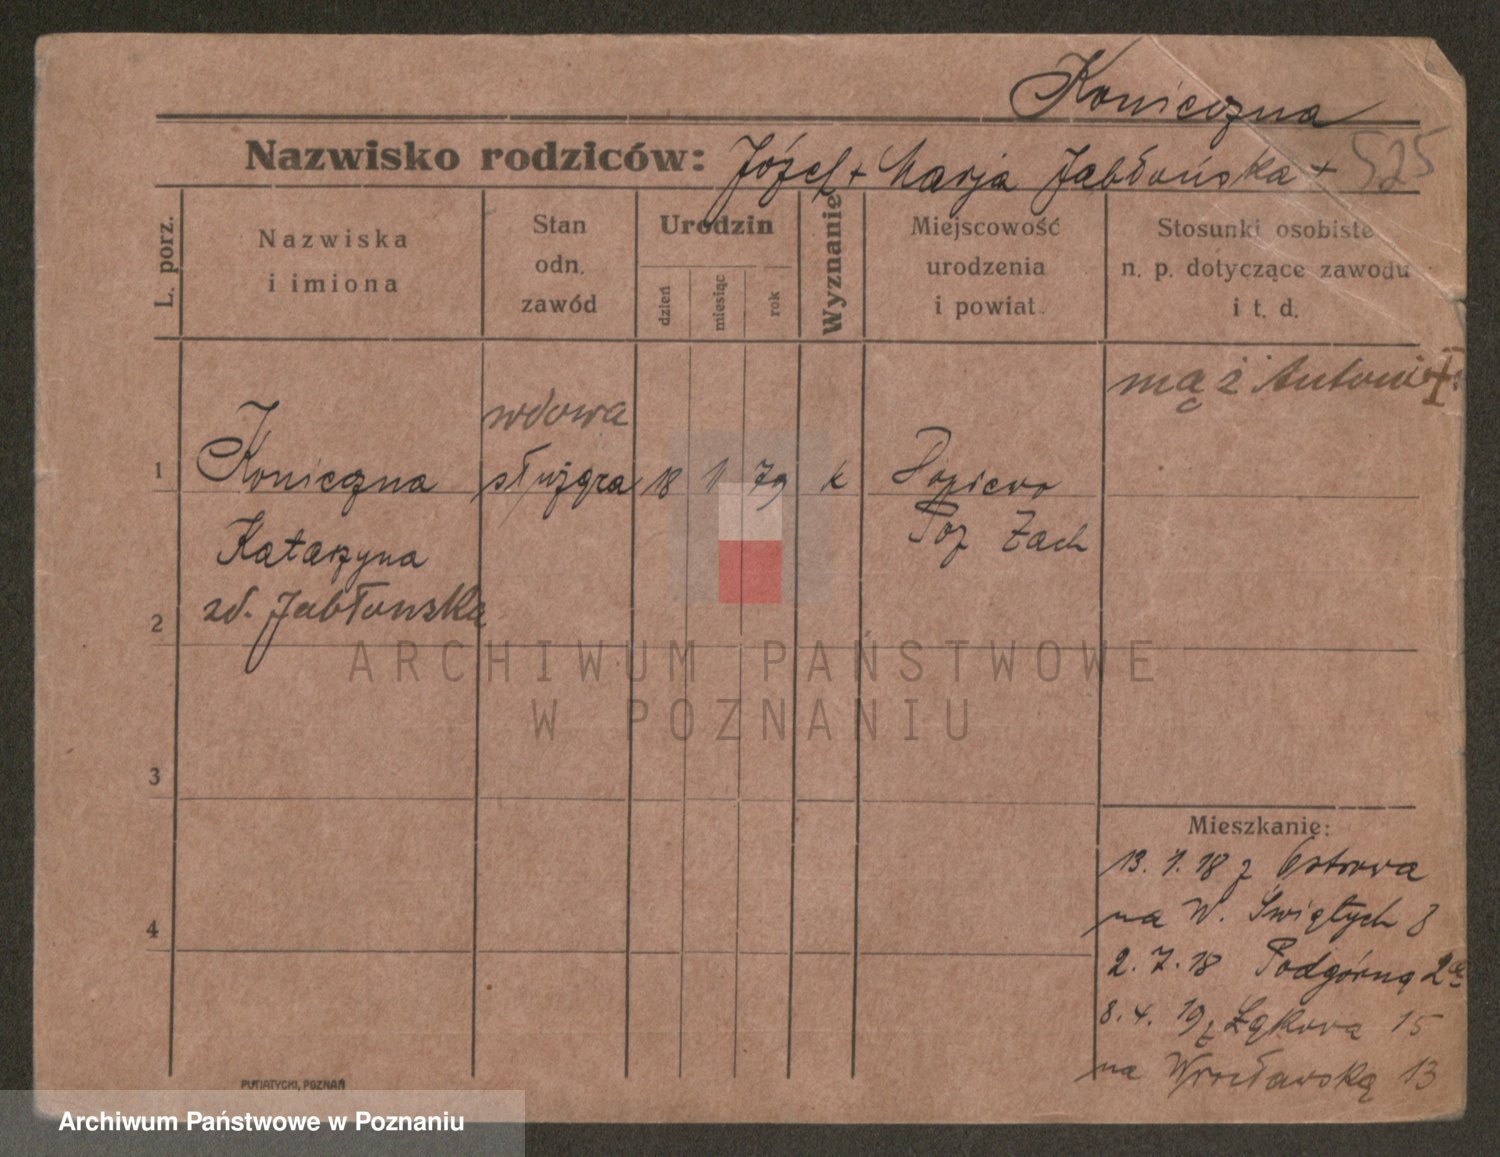 Konieczna
Nazwisko rodziców: Józef + Marja Jabłońska + 525
L. porz.
Nazwiska
i imiona
Stan
odn.
zawód
Urodzin
dzień
miesiąc
rok
Wyznanie
Miejscowość
urodzenia
i powiat.
Stosunki osobiste
n. p. dotyczące zawodu
i t. d.
mąż Antoni +
wdowa
1 Konieczna służąca 18 1 79 k
Katarzyna Poz Zach
zd. Jabłońska
2
ARCHIWUM PAŃSTWOWE
W POZNANIU
3
Mieszkanie:
13. 1. 18 z Ostrowa
na W. Świętych 8
4
2. 7. 18 Podgórną 2a
8. 4. 19 z Łąkowa 15
na Wrocławską 13
PUTIATYCKI, POZNAŃ
Archiwum Państwowe w Poznaniu